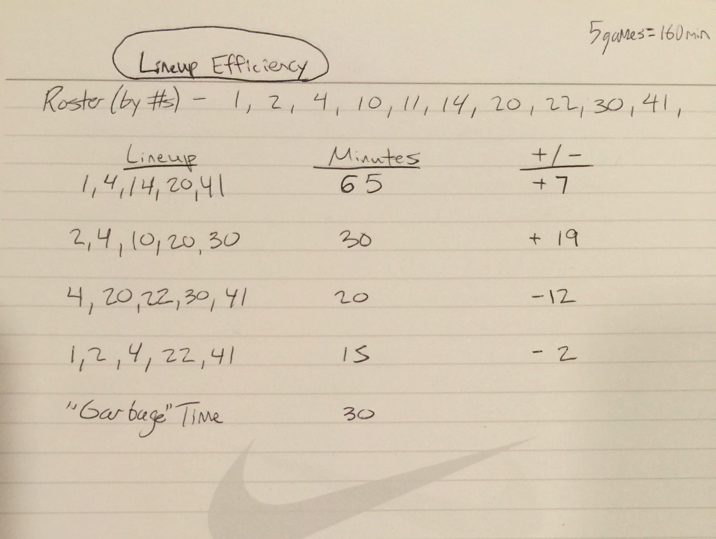 5games=160min
Lineup Efficiency
Roster (by #s) - 1, 2, 4, 10, 11, 14, 20, 22, 30, 41,
Lineup Minutes +/-
1, 4, 14, 20, 41 65 +7
2, 4, 10, 20, 30 30 + 19
4, 20, 22, 30, 41 20 -12
1, 2, 4, 22, 41 15 - 2
"Garbage" Time 30